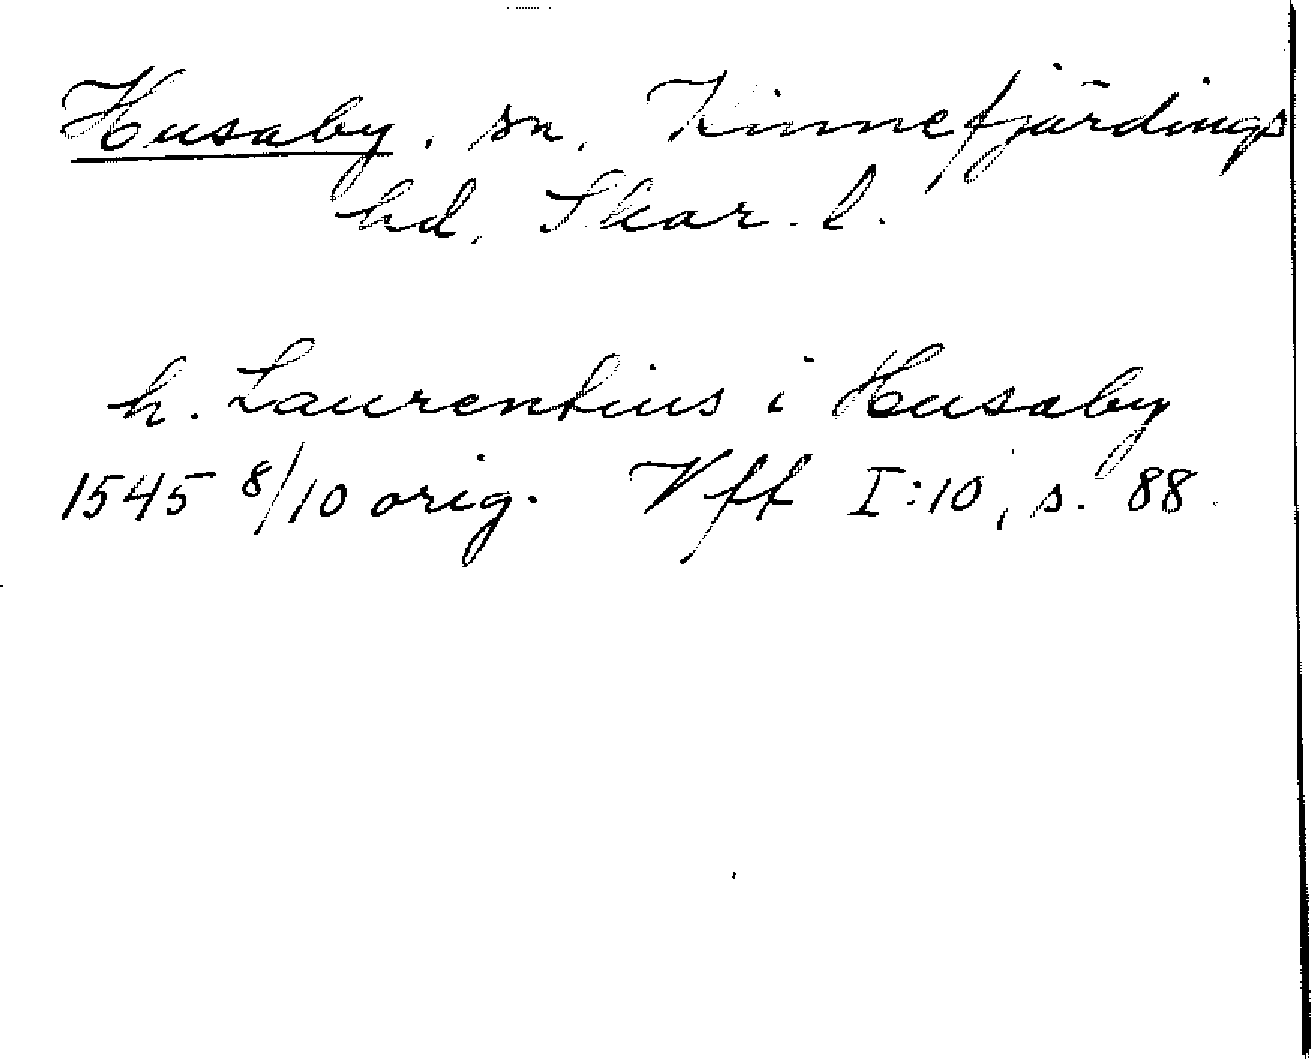 Husaby, sn, Kinnefjärdings
hd, Skar. l.
h. Laurentius i Husaby
1545 8/10 orig. Vff I:10, s. 88.